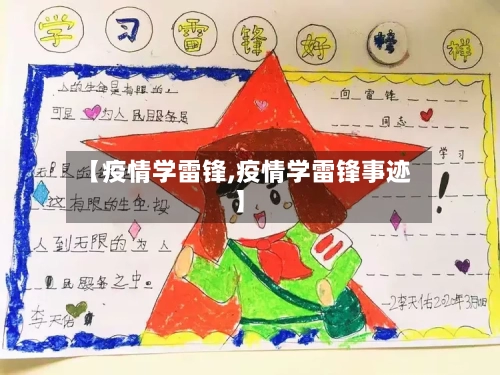 学习雷锋好榜样
人的生命是有限的
可是 为人民服务是
无
这有限的生命 投
人到无限的为人
民服务之中.
李天佑
【疫情学雷锋,疫情学雷锋事迹
】
向雷锋
同志
学习
!
李天佑2020年3月